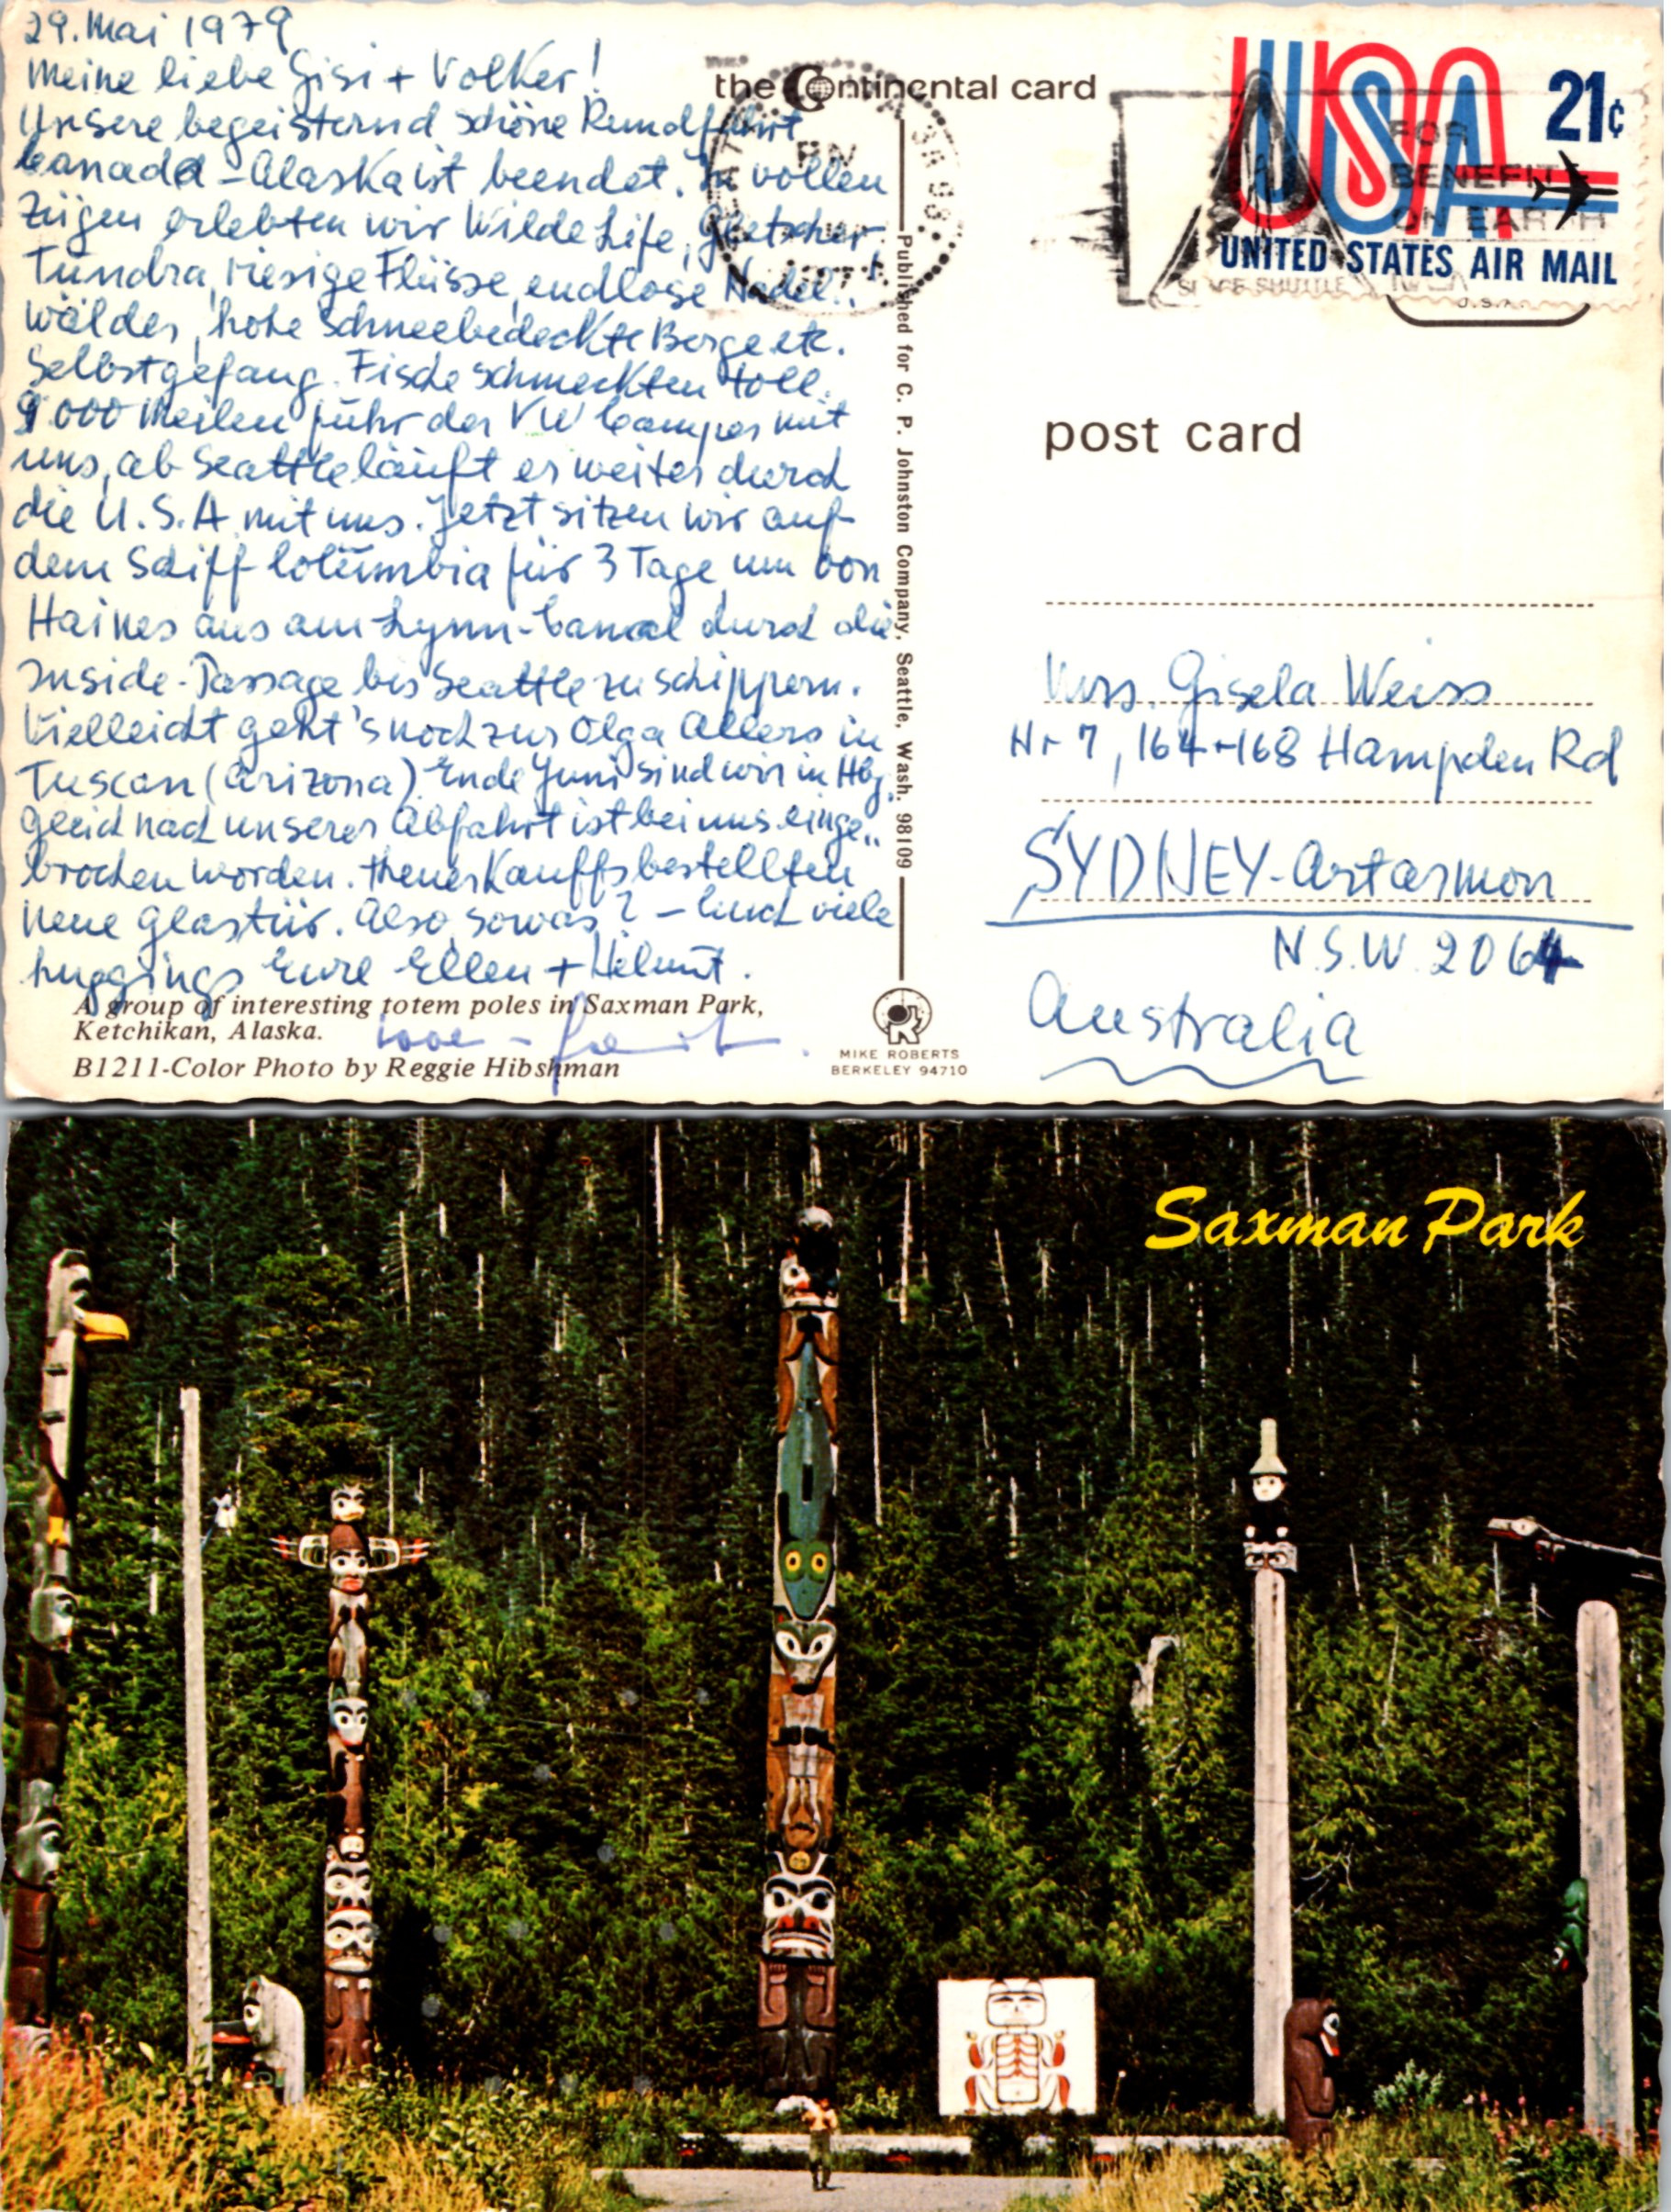 29. Mai 1979
Meine liebe Gisi + Volker!
Unsere begeisternd schöne Rundfahrt
Canada - Alaska ist beendet. In vollen
Zügen erlebten wir Wilde Life, Gletscher,
Tundra, riesige Flüsse, endlose Nadel..
wälder, hohe schneebedeckte Berge etc.
Selbstgefang. Fische schmeckten toll.
9000 Meilen fuhr der VW Camper mit
uns, ab Seattle läuft er weiter durch
die U.S.A mit uns. Jetzt sitzen wir auf
dem Schiff Columbia für 3 Tage um von
Haines aus am Lynn-Canal durch die
Inside-Passage bis Seattle zu schippern.
Vielleicht geht's noch zur Olga Allers in
Tuscon (Arizona). Ende Juni sind wir in Hbg.
Gleich nach unserer Abfahrt ist bei uns einge..
brochen worden. bestellten
neue Glastür. Also, sowas? - Euch viele
huggings Eure Ellen + Helmut.
love -
A group of interesting totem poles in Saxman Park,
Ketchikan, Alaska.
B1211-Color Photo by Reggie Hibshman
the Continental card
Published for C. P. Johnston Company, Seattle, Wash. 98109
MIKE ROBERTS
BERKELEY 94710
PM
FOR
BENEFIT
ON EARTH
SPACE SHUTTLE
NASA
U.S.A.
USA
21¢
UNITED STATES AIR MAIL
post card
Mrs. Gisela Weiss
Nr 7, 164-168 Hampden Rd
SYDNEY-Artarmon
N.S.W. 2064
Australia
Saxman Park